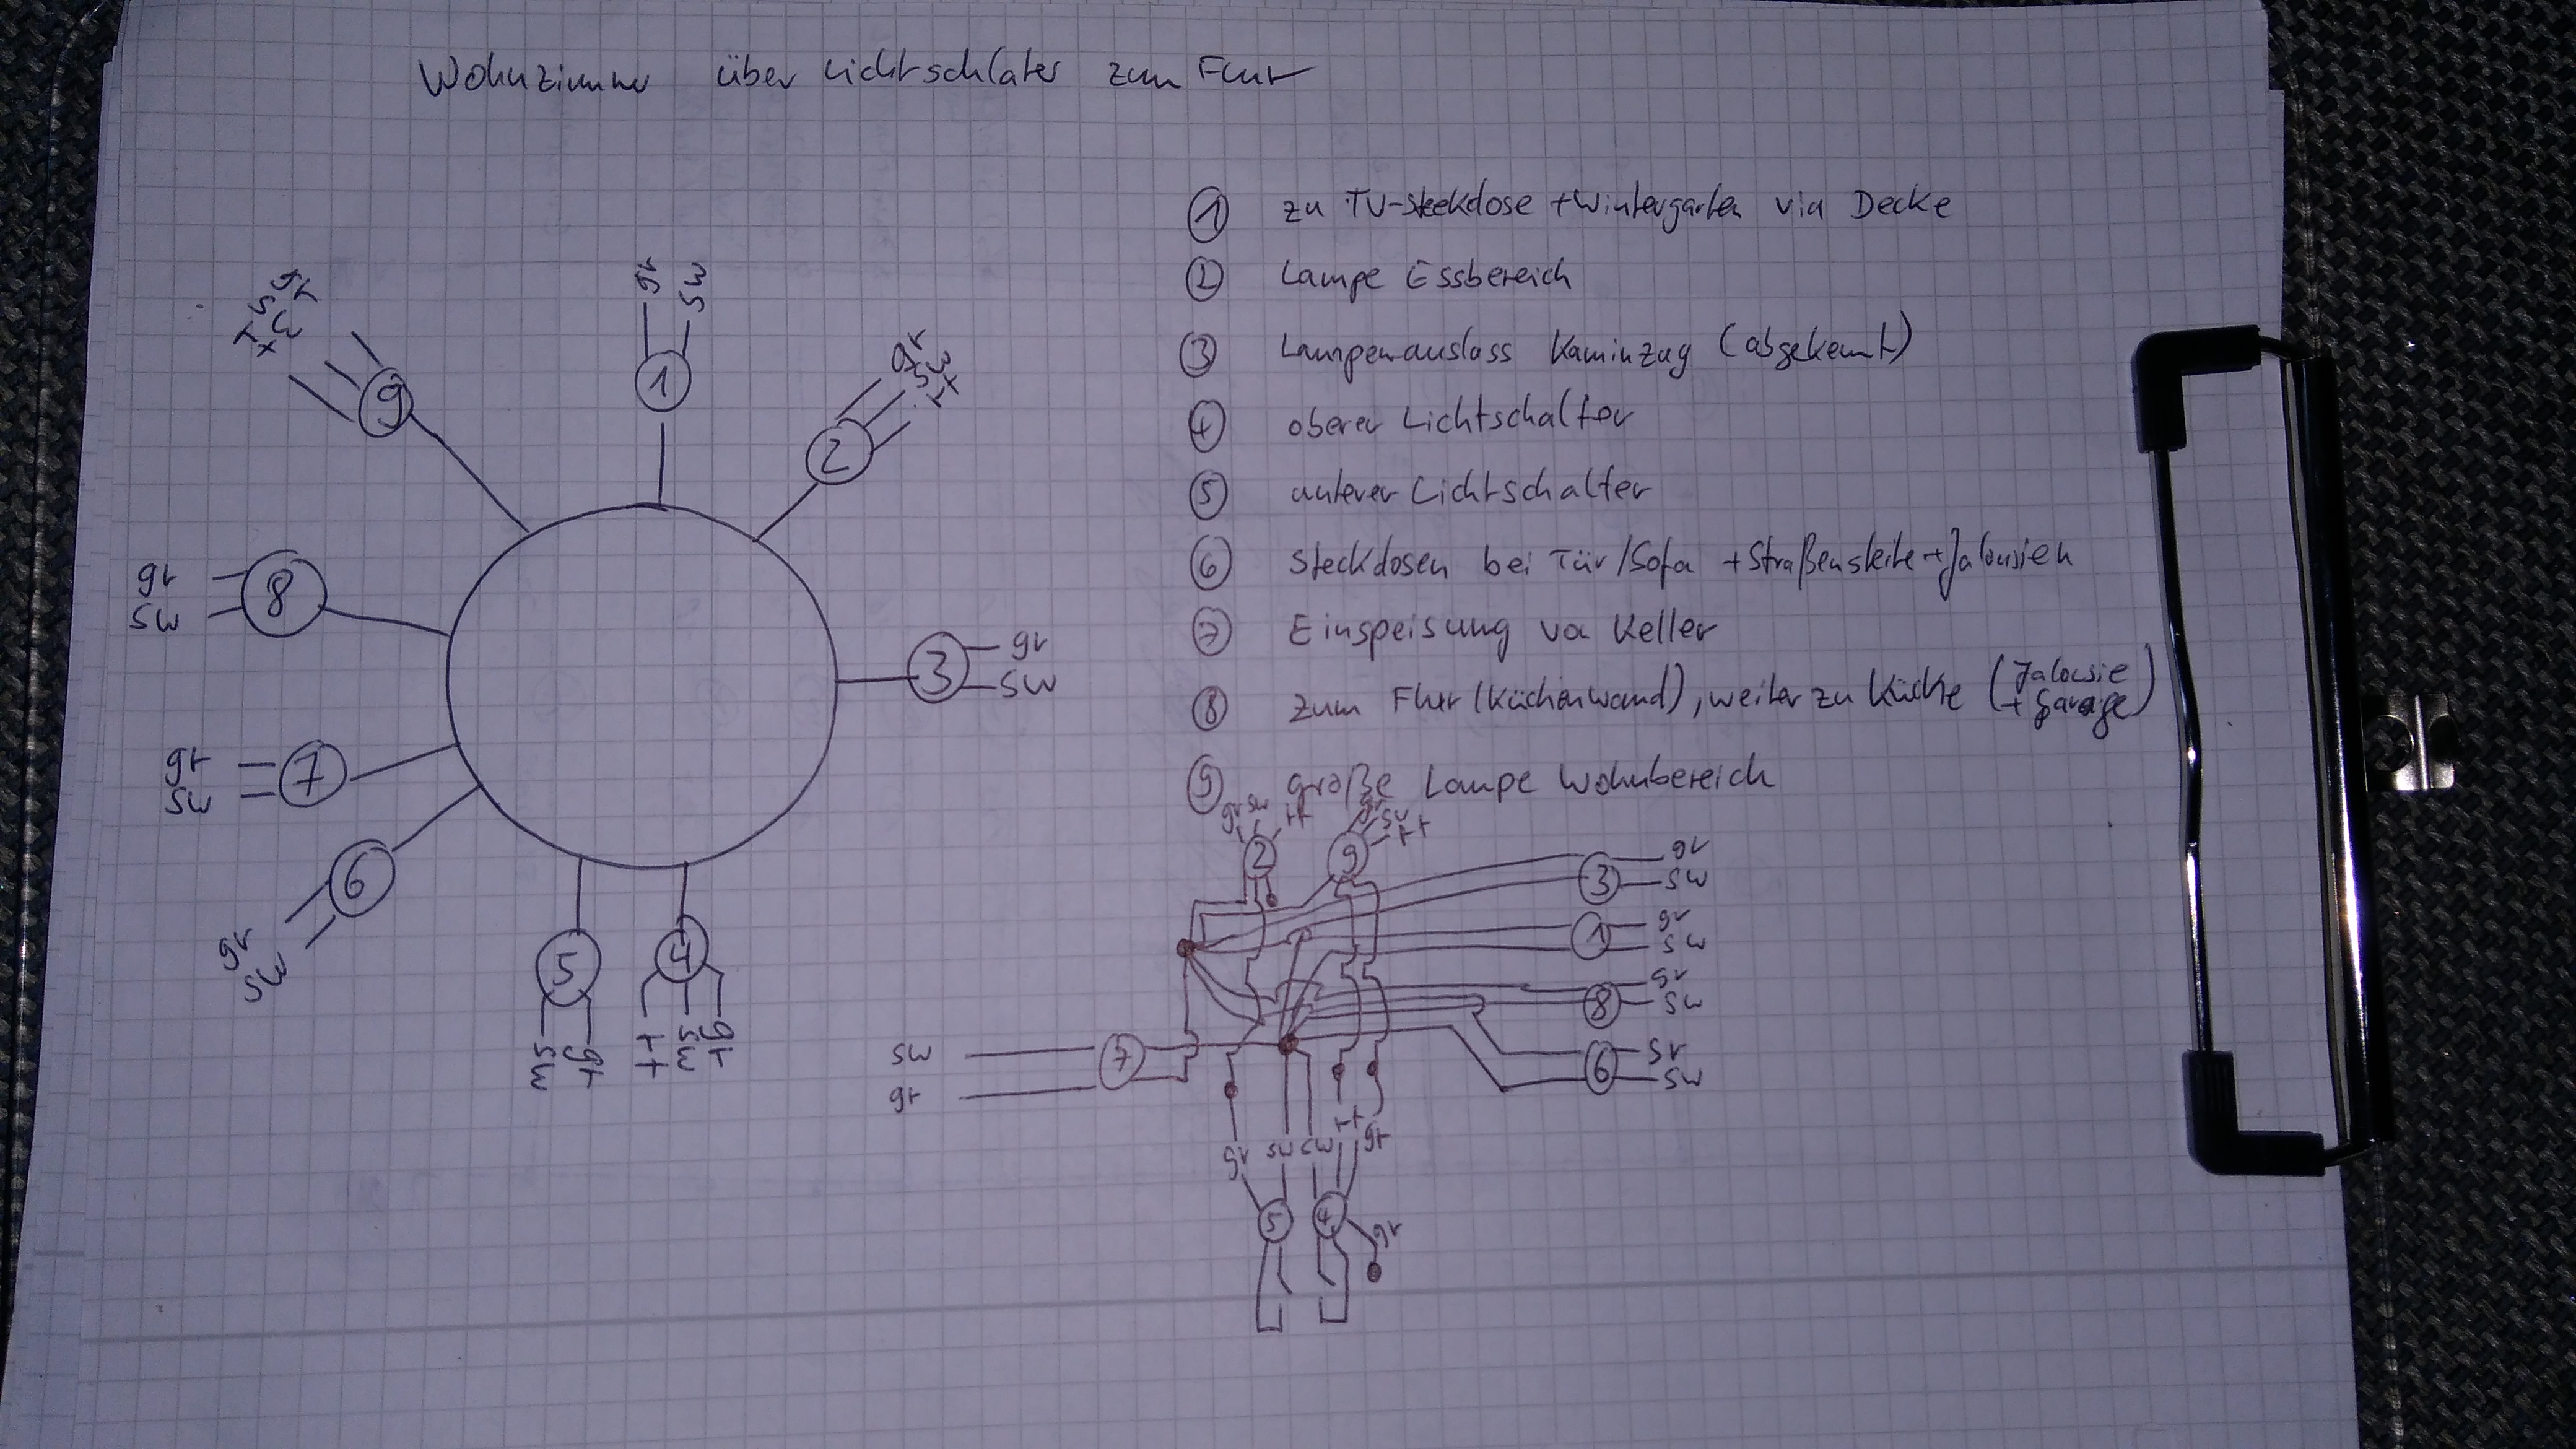 Wohnzimmer über Lichtschlater zum Flur
① zu TV-Steckdose + Wintergarten via Decke
② Lampe Essbereich
③ Lampenauslass Kaminzug (abgekemmt)
④ oberer Lichtschalter
⑤ unterer Lichtschalter
⑥ Steckdosen bei Tür/Sofa + Straßenseite + Jalousien
⑦ Einspeisung va Keller
⑧ zum Flur (Küchenwand), weiter zu Küche (Jalousie + Garage)
⑨ große Lampe Wohnbereich
gr sw rt
9
gr sw
1
gr sw rt
2
gr
8
sw
gr
3
sw
gr
7
sw
6
gr
sw
5
sw gr
4
rt sw gr
gr sw rt
2
gr sw rt
9
gr
3
sw
gr
1
sw
gr
8
sw
sw
7
gr
gr
6
sw
gr sw sw rt gr
5 4 gr